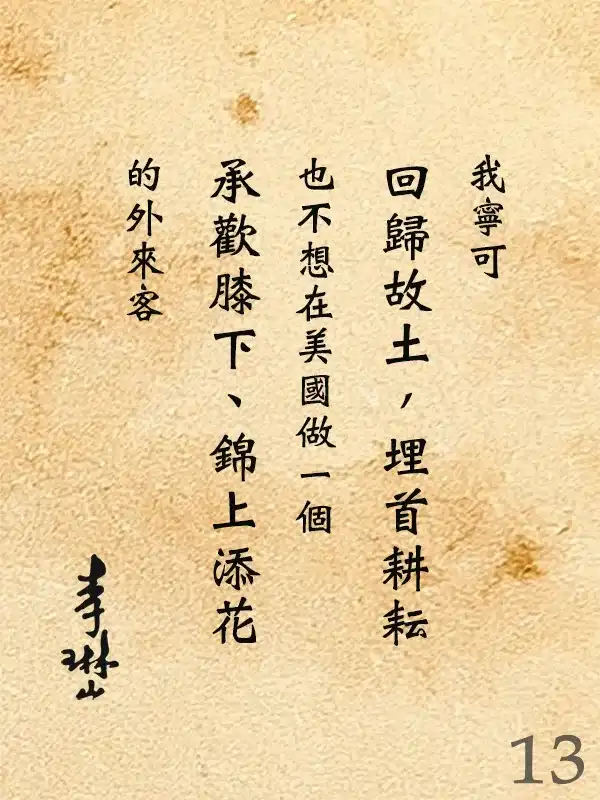 我寧可
回歸故土，埋首耕耘
也不想在美國做一個
承歡膝下、錦上添花
的外來客
李琳山
13